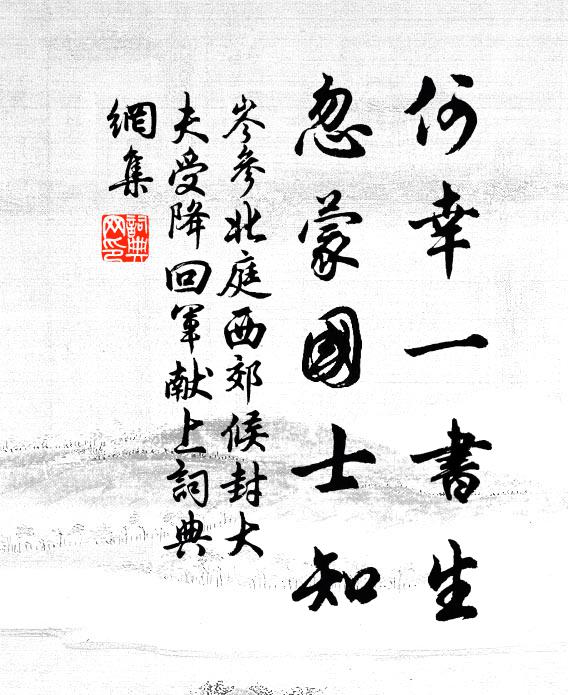 何幸一書生
忽蒙國士知
岑參北庭西郊候封大
夫受降回軍献上詞典
網集
詞典
网印